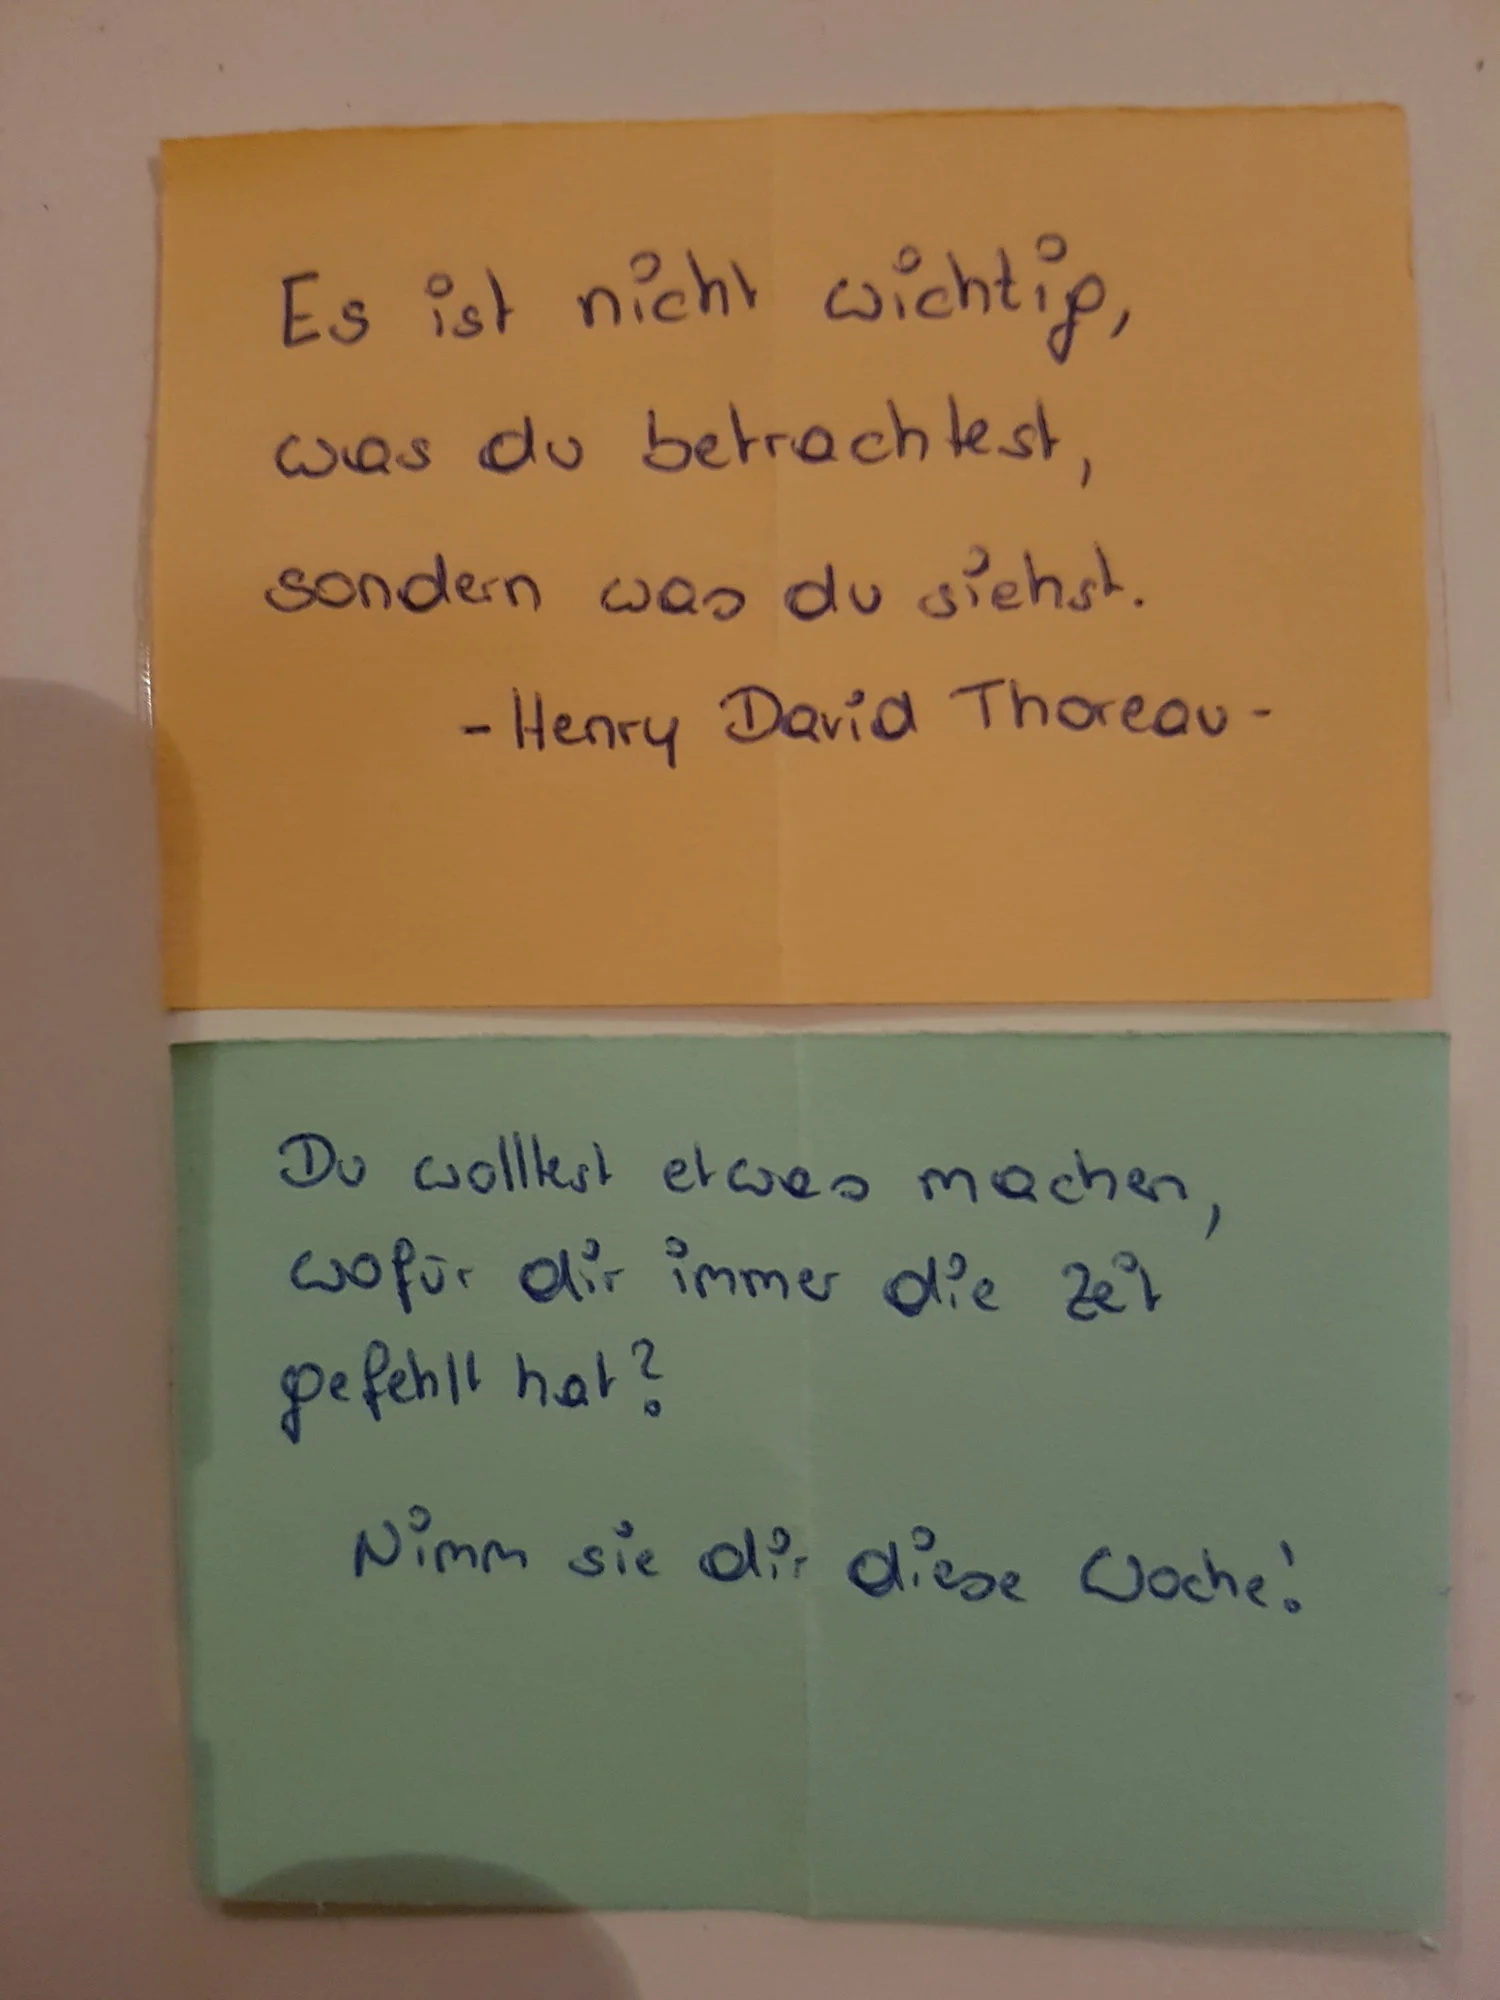 Es ist nicht wichtig,
was du betrachtest,
sondern was du siehst.
- Henry David Thoreau -
Du wolltest etwas machen,
wofür dir immer die Zeit
gefehlt hat?
Nimm sie dir diese Woche!